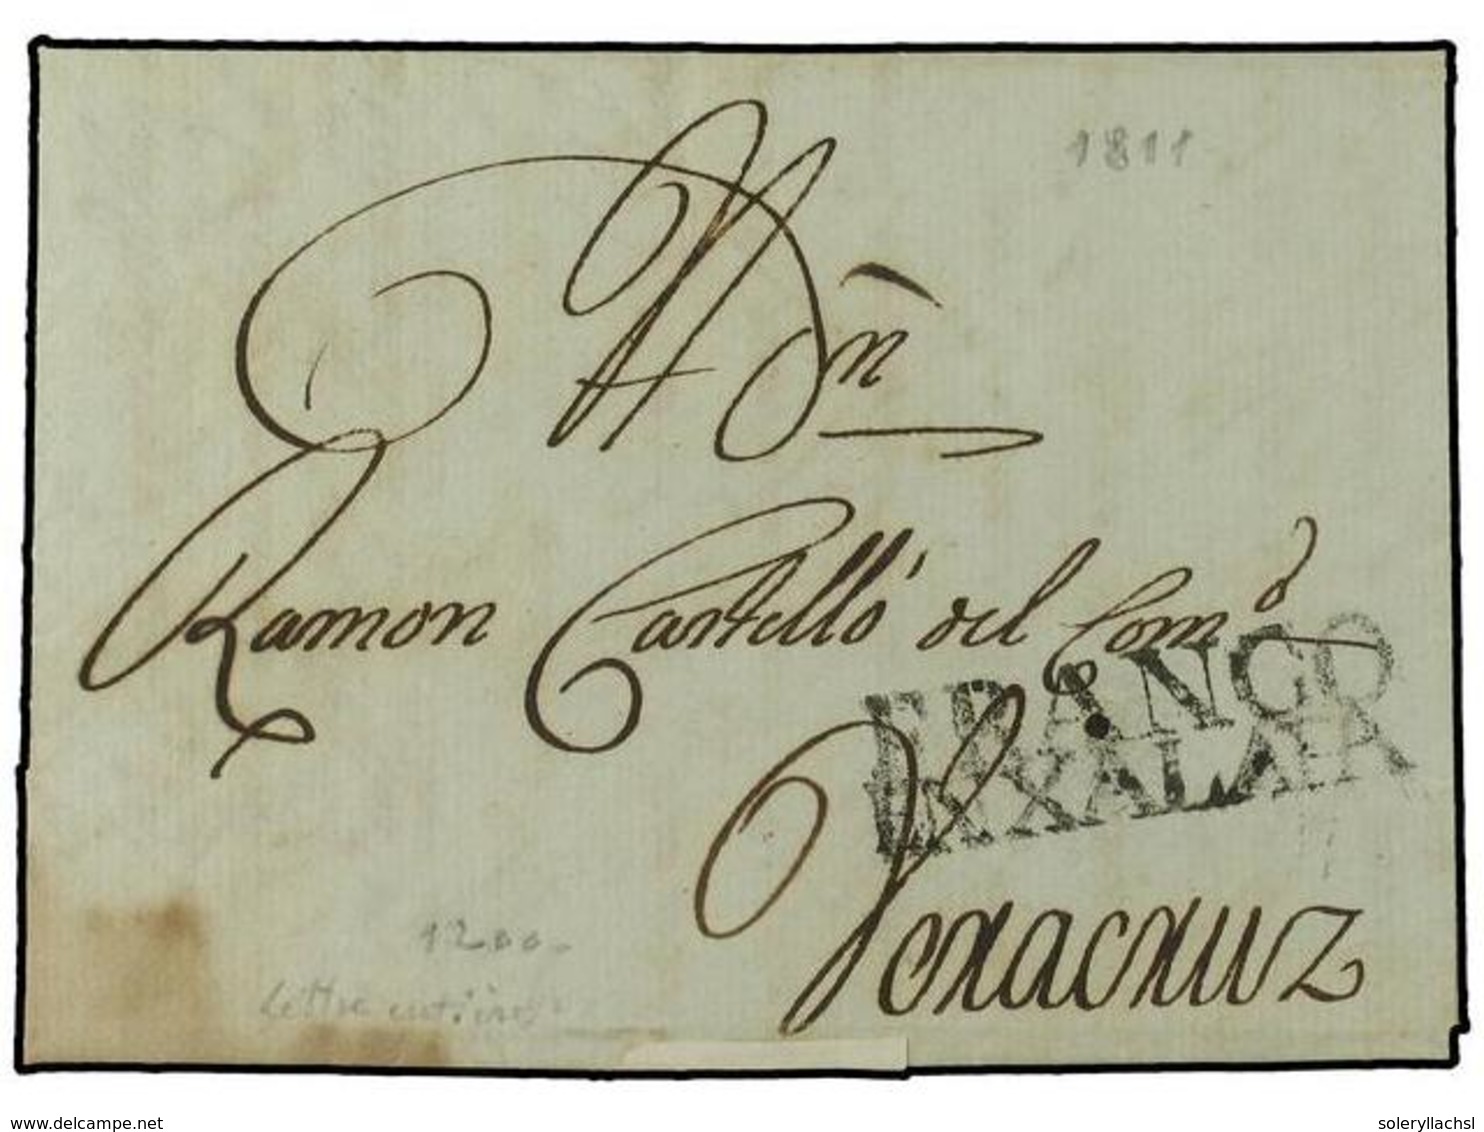 1811
A Dn
Ramon Castelló del Como
FRANCO
EN XALAPA
Veracruz
1200.
Lettre entière
delcampe.net
soleryllachsl